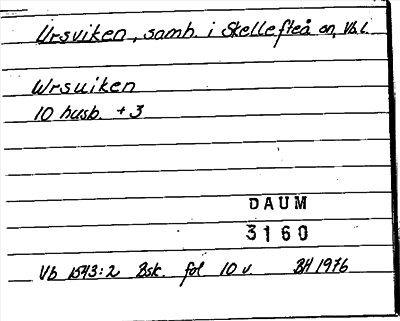 Ursviken, samh. i Skellefteå sn, Vb. l.
Wrsuiken
10 husb. + 3
DAUM
3160
Vb 1543:2 Bsk. fol 10 v. BH 1976